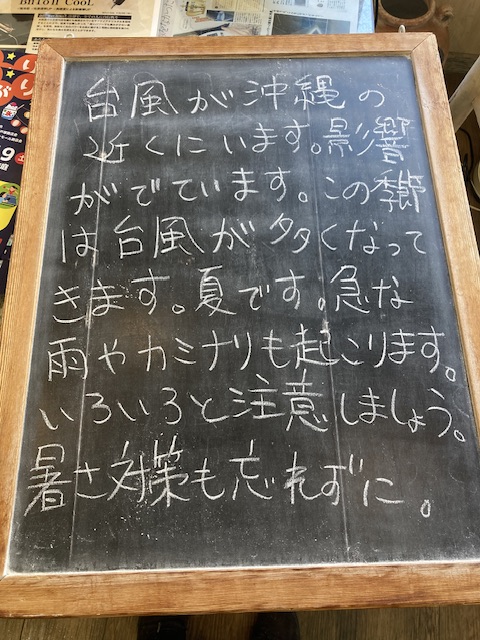 Bhion Cool
台風が沖縄の
近くにいます。影響
がでています。この季節
は台風が多くなって
きます。夏です。急な
雨やカミナリも起こります。
いろいろと注意しましょう。
暑さ対策も忘れずに。